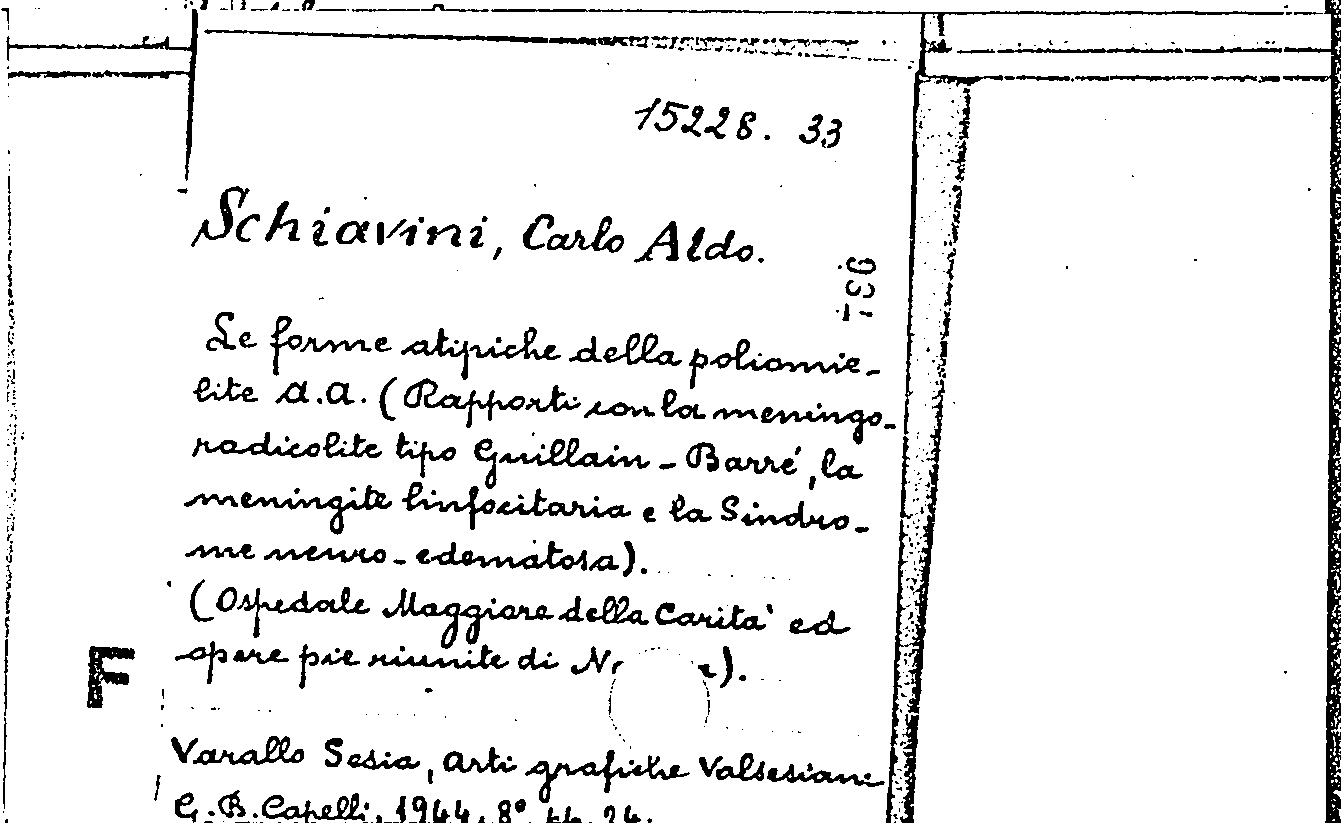 15228. 33
Schiavini, Carlo Aldo.
Le forme atipiche della poliomie-
lite a.a. (Rapporti con la meningo-
radicolite tipo Guillain - Barré, la
meningite linfocitaria e la Sindro-
me neuro-edematosa).
(Ospedale Maggiore della Carità ed
opere pie riunite di
F
Varallo Sesia, Arti grafiche Valsesiane
G.B. Capelli, 1944, 8° pp. 24.